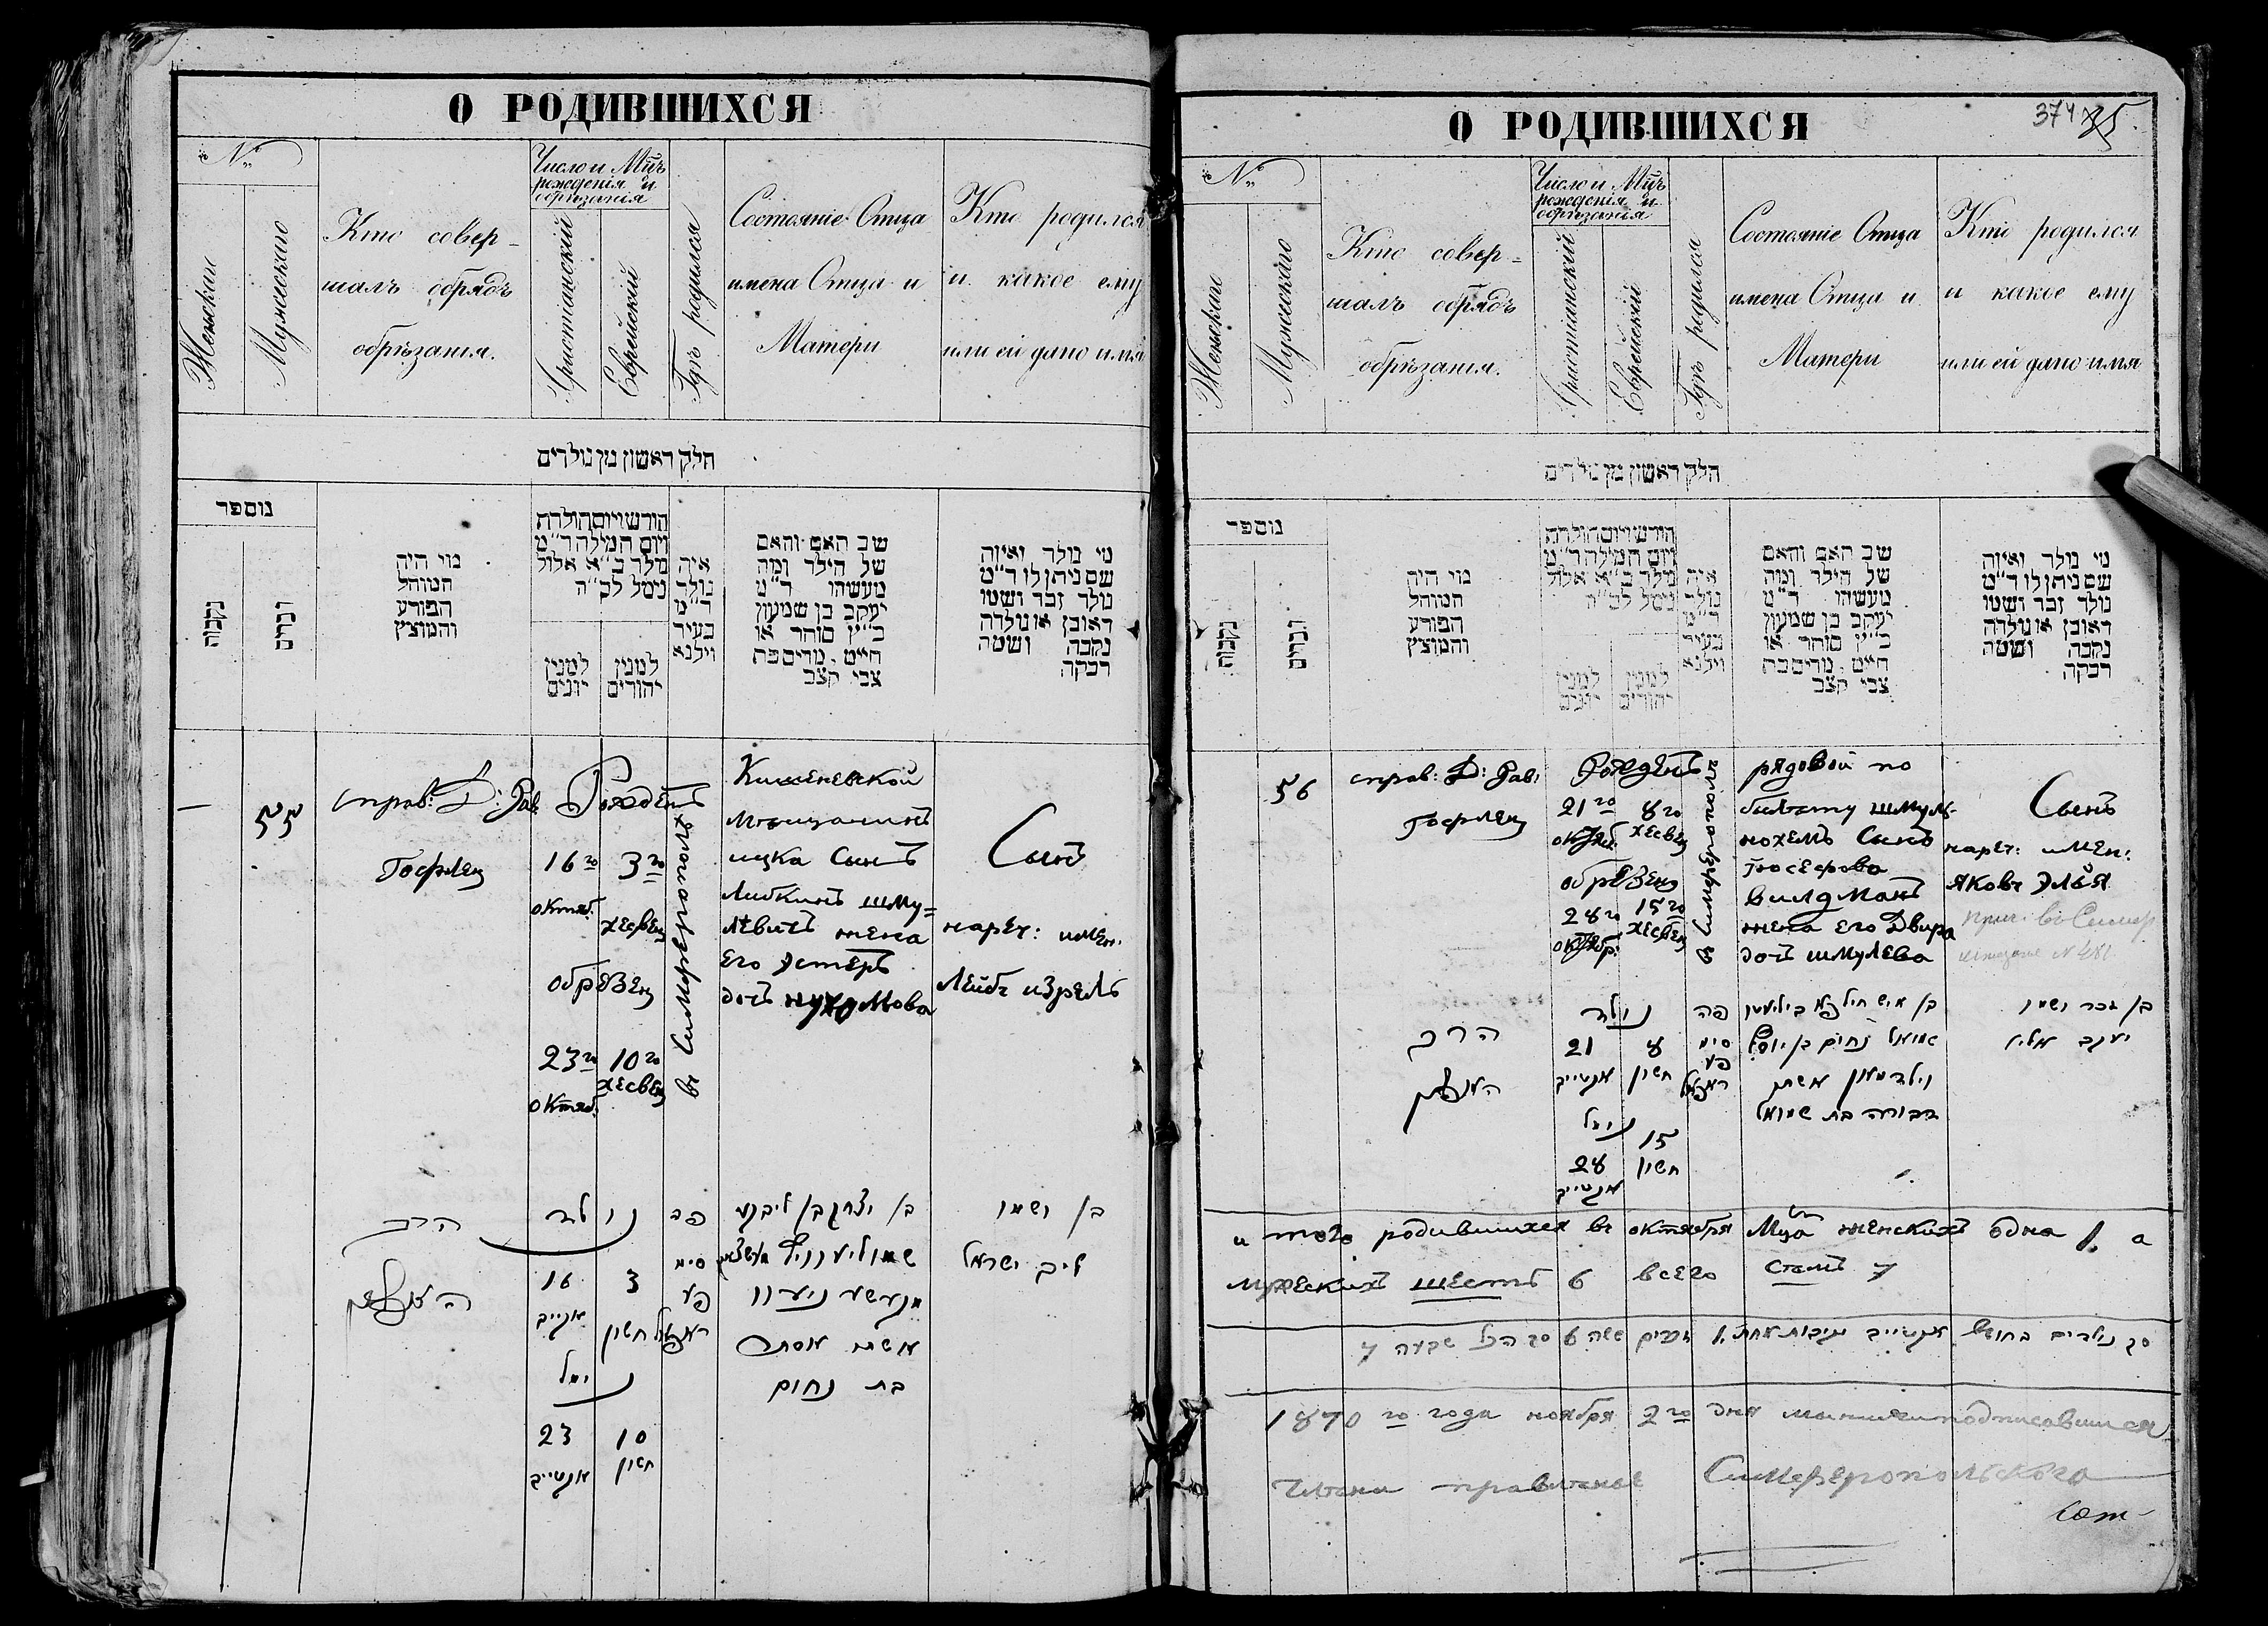 О РОДИВШИХСЯ
№
Женскаго
Мужескаго
Кто совер-
шалъ обрядъ
обрѣзанія.
Число и Мц̃ъ
рожденія и
обрѣзанія
Христіанскій
Еврейскій
Гдѣ родился
Состояніе Отца
имена Отца и
Матери
Кто родился
и какое ему
или ей дано имя
חלק ראשון מן נולדים
נוספר
נקבות
זכרים
מי היה
המוהל
הפורע
והמוצץ
חורש ויום הולדת
ויום המילה ד״מ
נולד ב״א אלול
נימל לכ״ה
למנין
יונים
למנין
יהודים
איה
נולד
ד״מ
בעיר
וילנא
שם האם והאם
של הילד ומה
מעשהו ד״מ
יעקב בן שמעון
כ״ץ סוחר או
חייט. מרים בת
צבי קצב
מי נולד ואיזה
שם ניתן לו ד״מ
נולד זכר ושמו
ראובן או נולדה
נקבה ושמה
רבקה
—
55
справ: Д: Рав
Гофлец
Рожденъ
16го 3го
октяб. хесвец
обрезец
23го 10го
октяб. хесвец
въ Симферополѣ
Кишеневской
Мещанинъ
ицка Сынъ
Либкинъ шму=
левичъ жена
его Эстеръ
дочъ нухомова
Сынъ
нареч: имен.
Лейбъ изрель
הרב
נולד
16 3
חשון
נימל
23 10
חשון
פה
סימ
פע
בן יצחק בן
אשתו אסתר
בת נחום
בן ושמו
ליב ישראל
О РОДИВШИХСЯ
374 35
№
Женскаго
Мужескаго
Кто совер-
шалъ обрядъ
обрѣзанія.
Число и Мц̃ъ
рожденія и
обрѣзанія
Христіанскій
Еврейскій
Гдѣ родился
Состояніе Отца
имена Отца и
Матери
Кто родился
и какое ему
или ей дано имя
חלק ראשון מן נולדים
נוספר
נקבות
זכרים
מי היה
המוהל
הפורע
והמוצץ
חורש ויום הולדת
ויום המילה ד״מ
נולד ב״א אלול
נימל לכ״ה
למנין
יונים
למנין
יהודים
איה
נולד
ד״מ
בעיר
וילנא
שם האם והאם
של הילד ומה
מעשהו ד״מ
יעקב בן שמעון
כ״ץ סוחר או
חייט. מרים בת
צבי קצב
מי נולד ואיזה
שם ניתן לו ד״מ
נולד זכר ושמו
ראובן או נולדה
נקבה ושמה
רבקה
56
справ: Д: Рав:
Гофлец
Рожденъ
21го 8го
октяб. хесвец
обрѣзец
28го 15го
октябр. хесвец
въ Симферополѣ
рядовой по
билету шмуль
нохемъ Сынъ
Іосефова
вилдманъ
жена его Двира
дочъ шмулева
Сынъ
нареч: имен:
яковъ Элья
הרב
נולד
21 8
חשון
נימל
15
28 חשון
פה
סימ
פע
שמואל נחום בן יוסף
ווילדמאן אשתו
דבורה בת שמואל
בן זכר ושמו
יעקב אליי
и того родившихся въ октября Мца женскихъ одна 1, а
мужескихъ шесть 6 всего семъ 7
סך נולדים בחודש נקבות אחת 1 זכרים ששה 6 סך הכל שבעה 7
1870го года ноября 2го дня мы нижеподписавшися
Члены правленые Симферопольского
Сом-